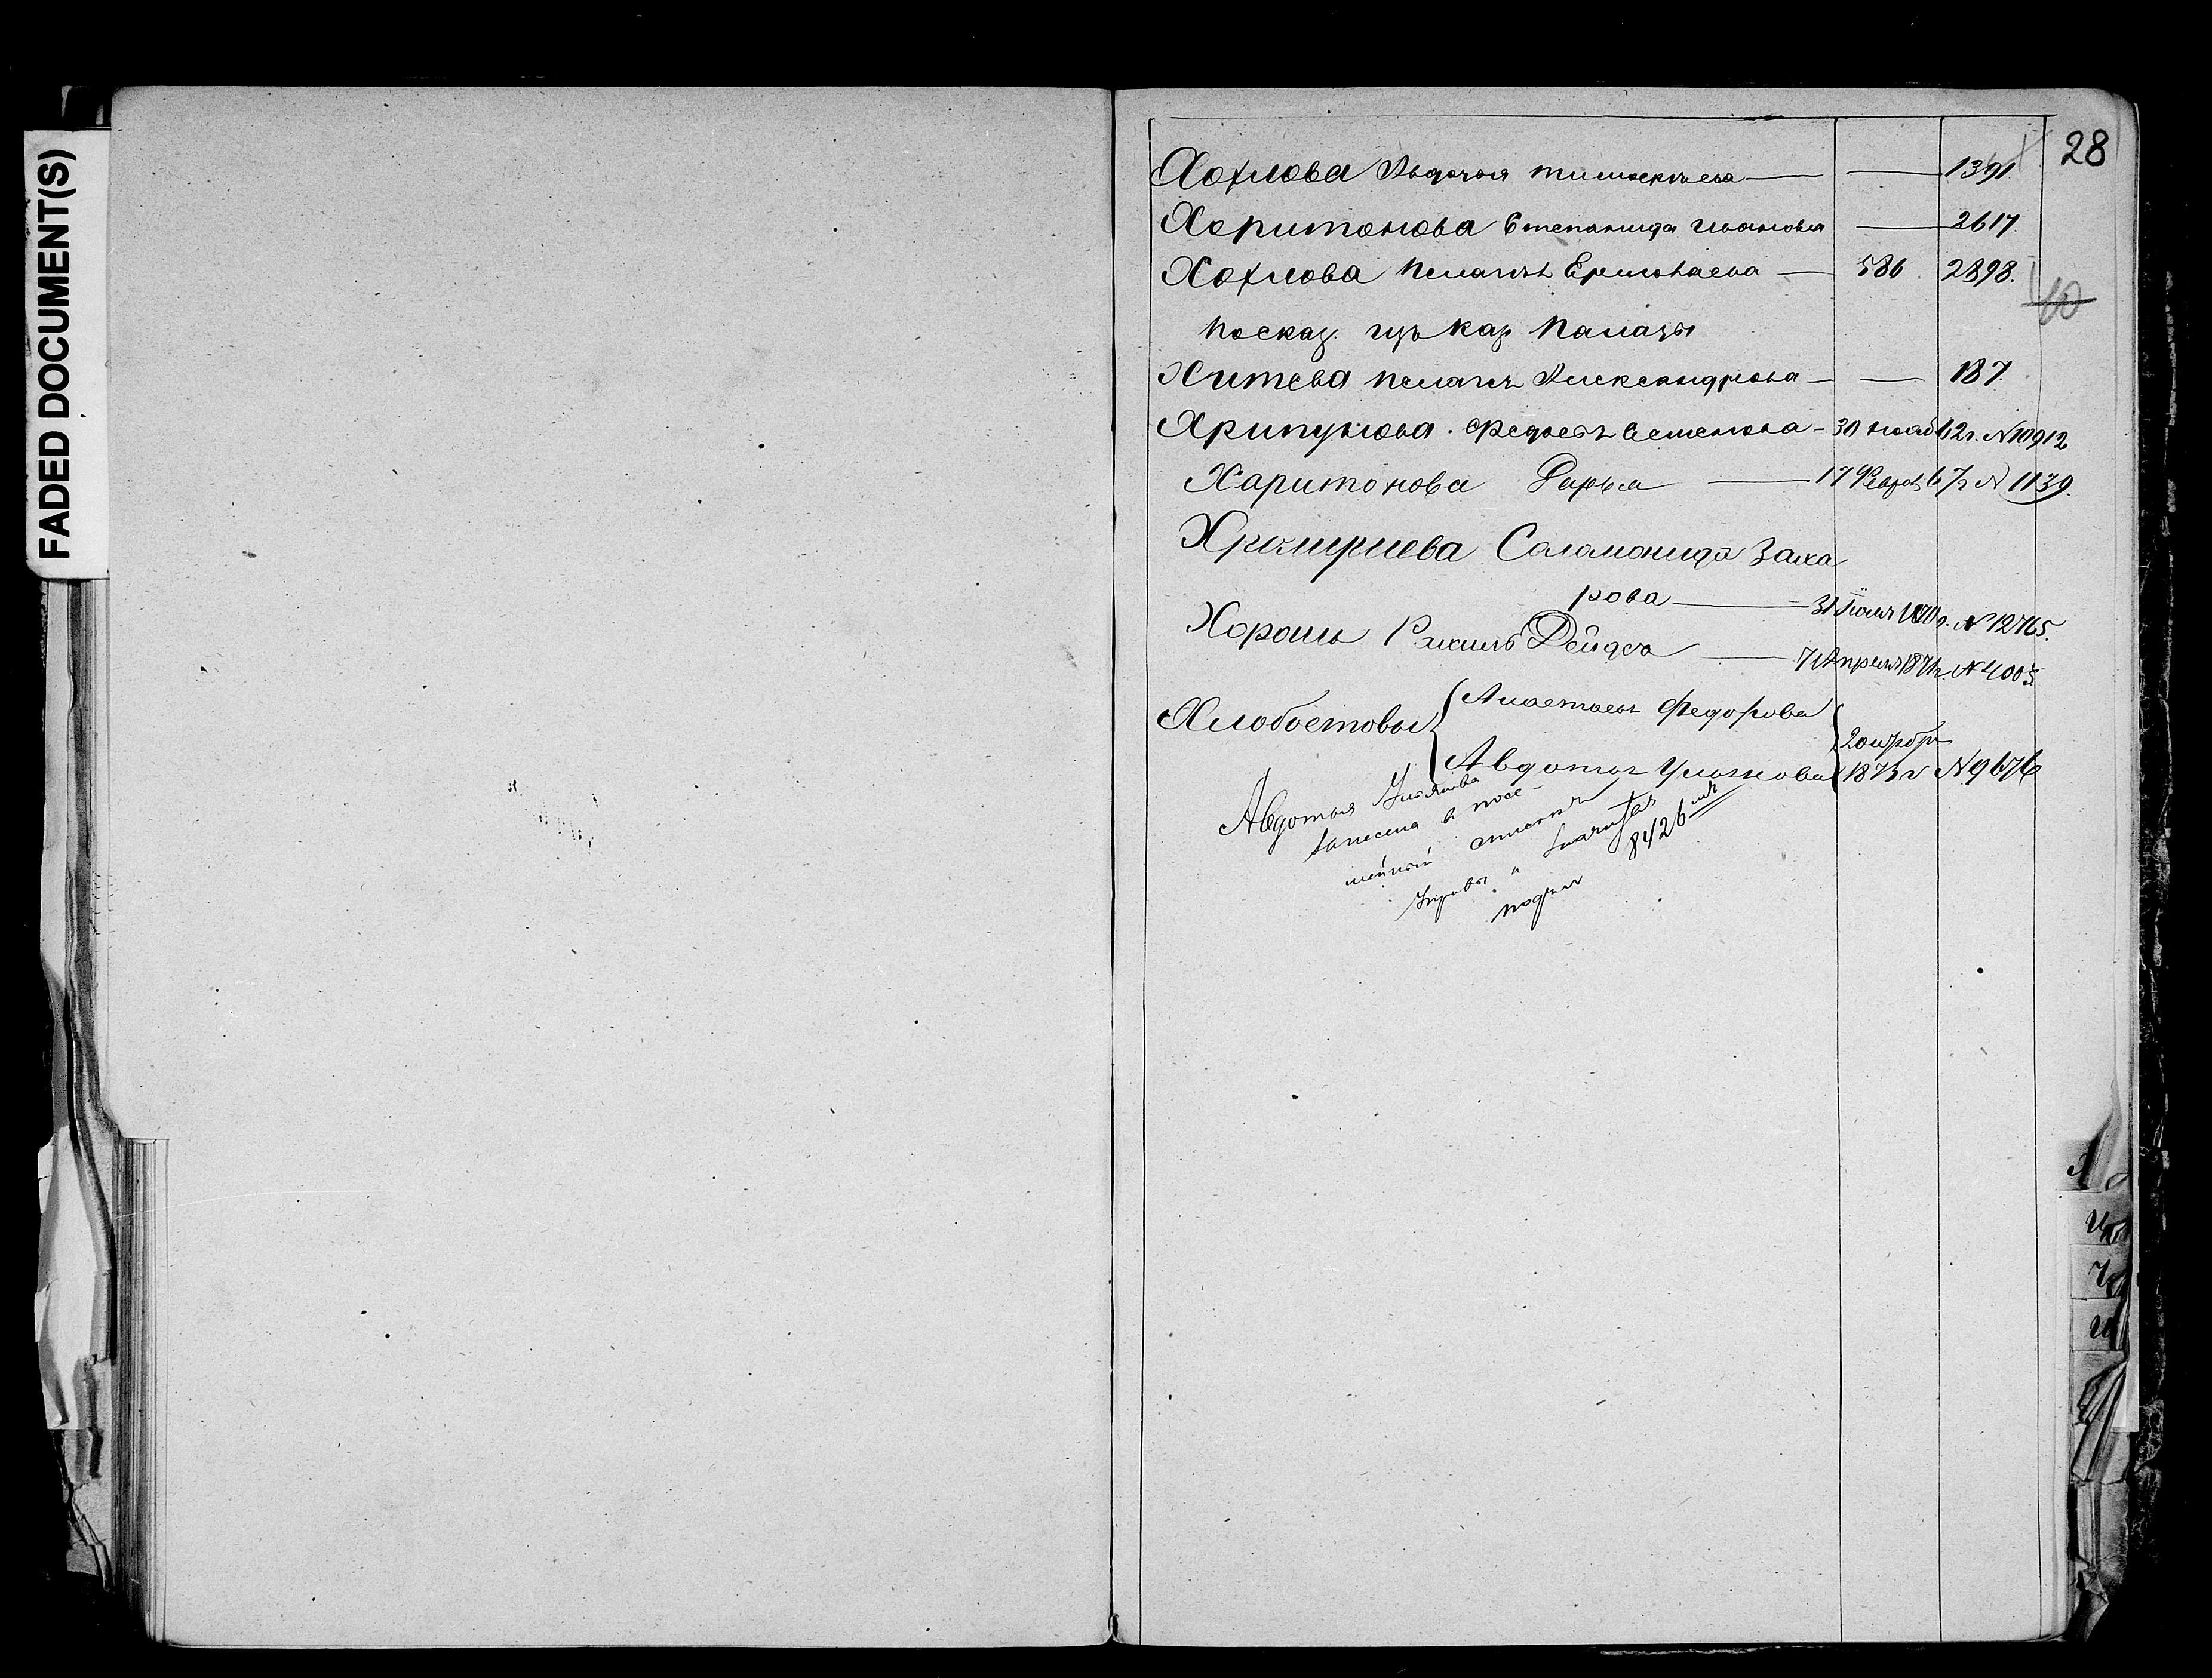 FADED DOCUMENT(S)
28
Хохлова Авдотья Тимофеева — — 1391.
Харитонова Степанида Иванова — 2617.
Хохлова Пелагея Ермолаева — 586. 2898.
60
По сказ. изъ каз. Палаты
Хитева Пелагея Александрова — — 187.
Хрипунова Федосья Семенова - 30 нояб 62г. N 10912
Харитонова Дарья — 17 Февр 67г N 1139.
Соломонида Заха
рова — 31 Іюля 1870г. N 12765.
Хорошь Рахиль Дейдса — 7 Апреля 1871г. N 4003
Хлобостовы { Анастасья Федорова
Авдотья Ульянова } 20 ноября
1873 г N 9676
Авдотья Ульянова
занесена в посе
мейный список
Управы
8426
подъ